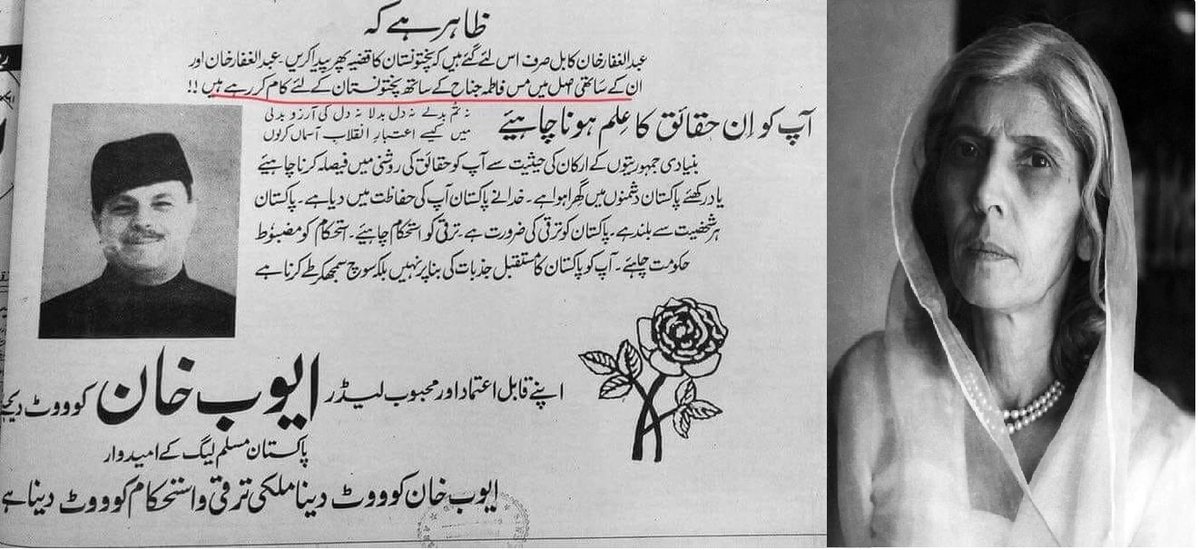 ظاہر ہے کہ
عبدالغفار خان کابل صرف اس لئے گئے ہیں کہ پختونستان کا قضیہ پھر پیدا کریں۔ عبدالغفار خان اور
ان کے ساتھی اصل میں مس فاطمہ جناح کے ساتھ پختونستان کے لئے کام کر رہے ہیں !!
آپ کو اِن حقائق کا عِلم ہونا چاہیئے
نہ تم بدلے نہ دل بدلا نہ دل کی آرزو بدلی
میں کیسے اعتبارِ انقلاب آسماں کر لوں
بنیادی جمہوریتوں کے ارکان کی حیثیت سے آپ کو حقائق کی روشنی میں فیصلہ کرنا چاہیئے
یاد رکھئے پاکستان دشمنوں میں گھرا ہوا ہے۔ خدا نے پاکستان آپ کی حفاظت میں دیا ہے۔ پاکستان
ہر شخصیت سے بلند ہے۔ پاکستان کو ترقی کی ضرورت ہے۔ ترقی کو استحکام چاہیئے۔ استحکام کو مضبوط
حکومت چاہئے۔ آپ کو پاکستان کا مستقبل جذبات کی بنا پر نہیں بلکہ سوچ سمجھ کر طے کرنا ہے
اپنے قابل اعتماد اور محبوب لیڈر ایوب خان کو ووٹ دیجئے
پاکستان مسلم لیگ کے امیدوار
ایوب خان کو ووٹ دینا ملکی ترقی و استحکام کو ووٹ دینا ہے